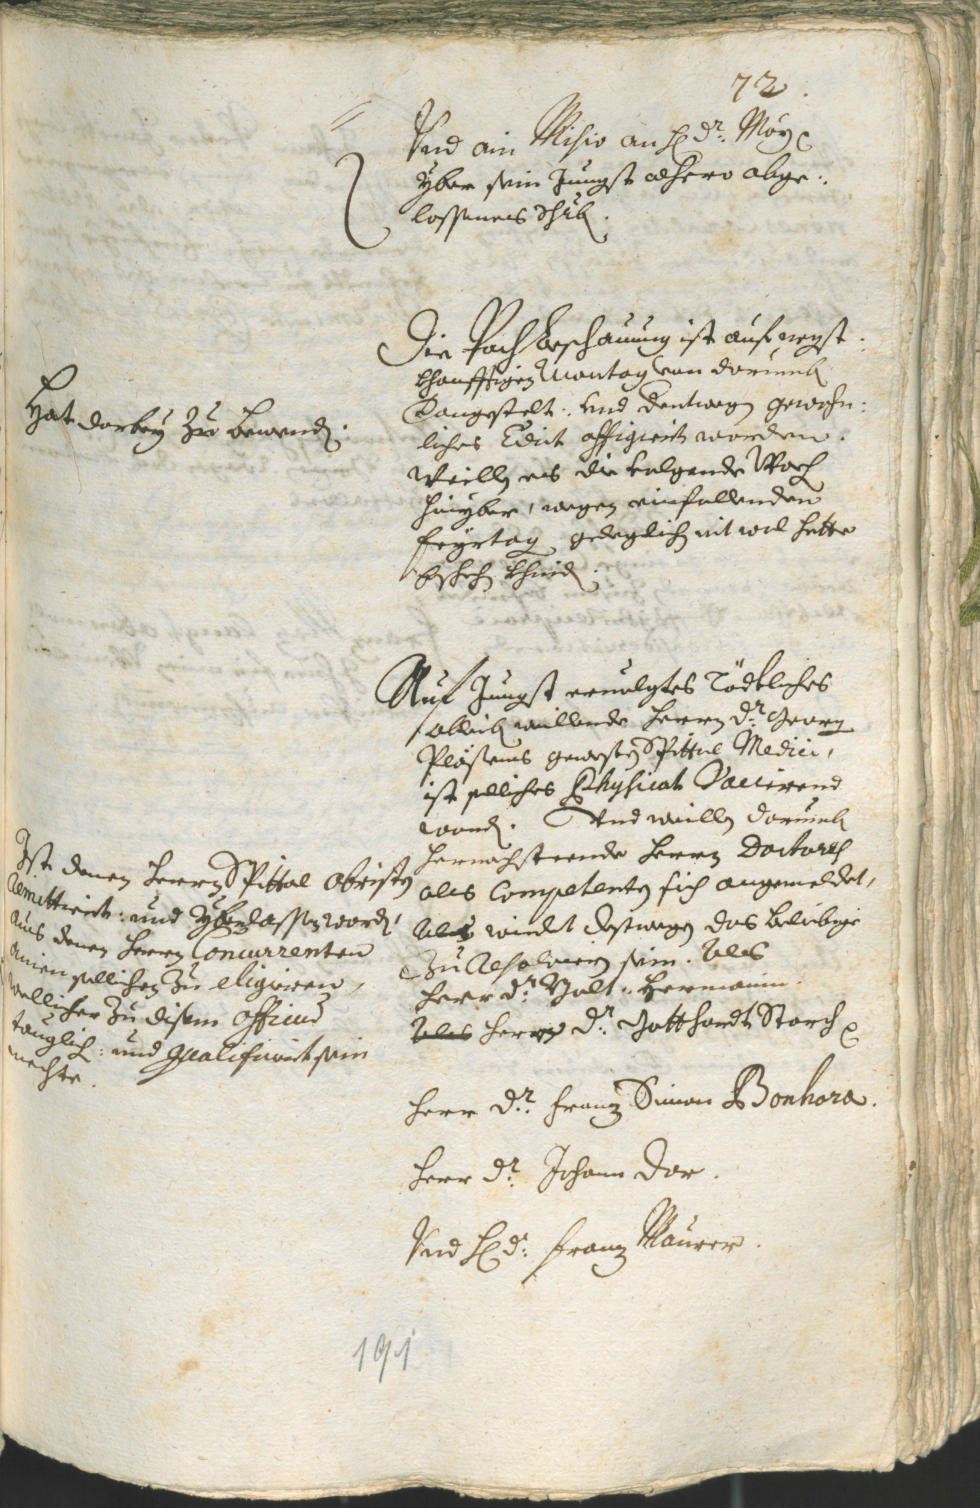 72.
Vnd ain Missiv an H: Dr: Moy
yber sein Jungst anhero abge:
lossenes Schrb.
Die Pachbeschauung ist auf negst
khonfftigen Montag von darumb
angestelt: vnd dentwegen gewohn:
liches Edict affigiert worden.
Weillen es die volgende Woch
hinyber, wegen einfallenden
Feyrtag gelegelich nit wol hette
bschehen khind.
Hat darbey zu bewend.
Auf Jungst ervolgtes Tödtliches
ableiben weillende Herrn Dr: Georg
gewesten Spittal Medici,
ist solliches Physicat Vacierend
word. Vnd weillen darumb
hernachsteende Herrn Doctores
als Competenten sich angemeldet,
Als wirdet destwegen das beliebige
zu Resolviern sein. Als
Herr Dr: Valt: Hermanin.
Als Herrn Dr: Gotthardt Storch
Herr Dr: Franz Simon Bonhora.
Herr Dr: Johann Dor.
Vnd H: Dr: Franz Maurer.
Ist denen Herrn Spittal Obristen
Remittiert: und yberlassen word,
aus denen Herrn Concurrenten
ainen sollichen zu eligieren,
wellicher zu disem Officio
tauglich: und Qualificiert sein
mechte.
191